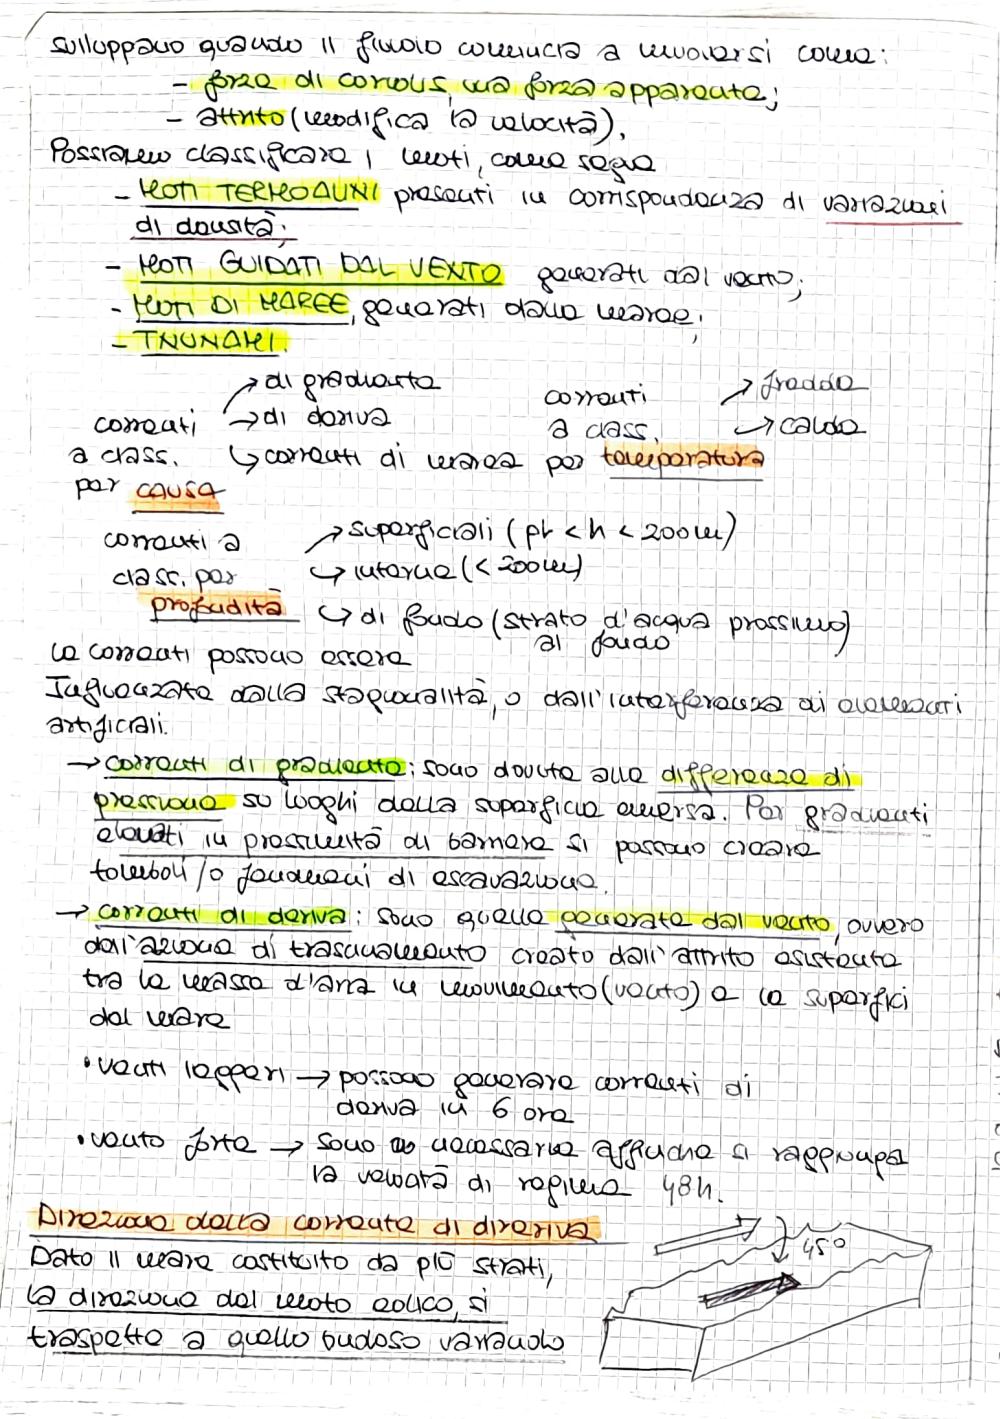 sviluppano quando il fluido comincia a muoversi come:
- forza di coriolis, una forza apparente;
- attrito (modifica la velocità),
Possiamo classificare i moti, come segue
- MOTI TERMOALINI presenti in corrispondenza di variazioni
di densità;
- MOTI GUIDATI DAL VENTO generati dal vento;
- MOTI DI MAREE, generati dalle maree;
- TNUNAMI.
correnti
a class.
per CAUSA
→ di gradiente
→ di deriva
↳ correnti di marea
correnti
a class.
per temperatura
→ fredde
→ calde
correnti a
class. per
profudità
→ superficiali (pr < h < 200m)
↳ interne (< 200m)
↳ di fondo (strato d'acqua prossimo)
al fondo
le correnti possono essere
Influenzate dalla stagionalità, o dall'interferenza di elementi
artificiali.
→ correnti di gradiente: sono dovute alle differenze di
pressione su luoghi della superficie emersa. Per gradienti
elevati in prossimità di barriere si possono creare
tomboli/o fenomeni di escavazione.
→ correnti di deriva: sono quelle generate dal vento, ovvero
dall'azione di trascinamento creato dall'attrito esistente
tra la massa d'aria in movimento (vento) e la superfici
del mare
• venti leggeri → possono generare correnti di
deriva in 6 ore
• vento forte → sono necessarie affinche si raggiunga
la velocità di regime 48h.
Direzione della corrente di direriva
Dato il mare costituito da più strati,
la direzione del moto eolico, si
traspette a quello ondoso variando
45°